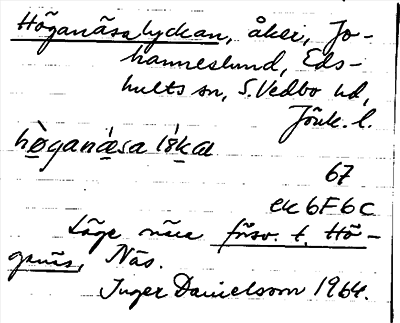 Höganäsalyckan, åker, Jo-
hanneslund, Eds-
hults sn, S. Vedbo hd,
Jönk. l.
höganäsa
67
ek 6F6c
Läge nära försv. t. Hö-
genäs, Näs.
Inger Danielsson 1964.